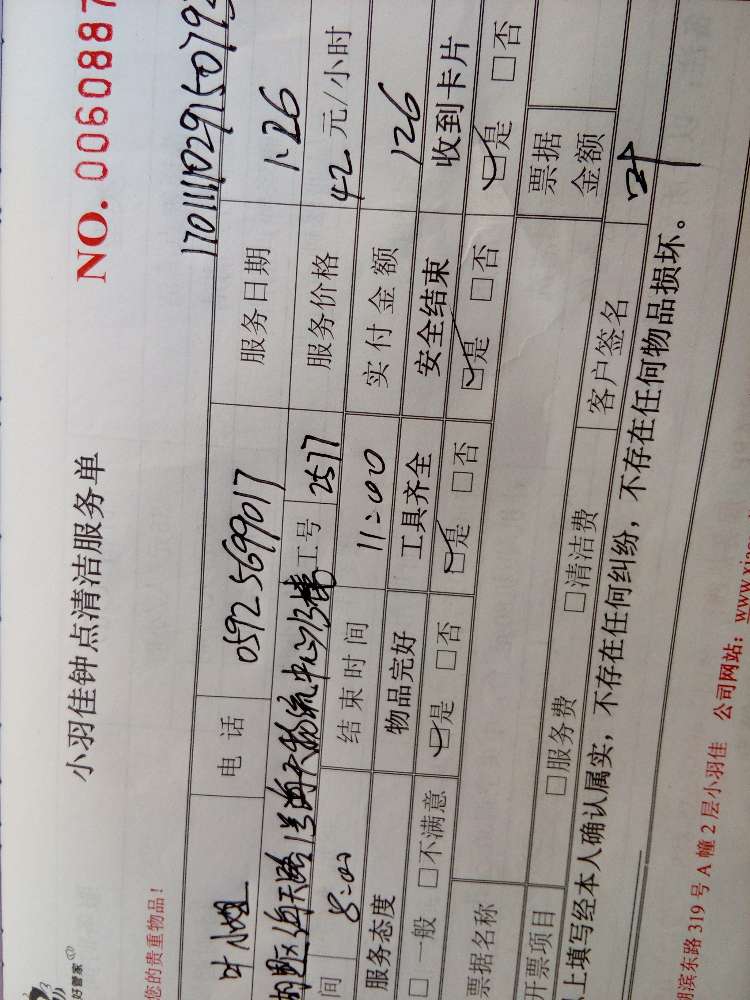 好管家
小羽佳钟点清洁服务单
NO. 0060887
您的贵重物品！
1701111029650793
叶小姐 电话 0592 5699017 服务日期 1.26
湖里区海天路 工号 2577 服务价格 42 元/小时
间 8:00 结束时间 11:00 实付金额 126
服务态度 物品完好 工具齐全 安全结束 收到卡片
□一般 □不满意 ☑是 □否 ☑是 □否 ☑是 □否 ☑是 □否
票据名称 票据金额
开票项目 □服务费 □清洁费 客户签名 叶
上填写经本人确认属实，不存在任何纠纷，不存在任何物品损坏。
滨东路 319 号 A 幢 2 层小羽佳 公司网站：www.xi